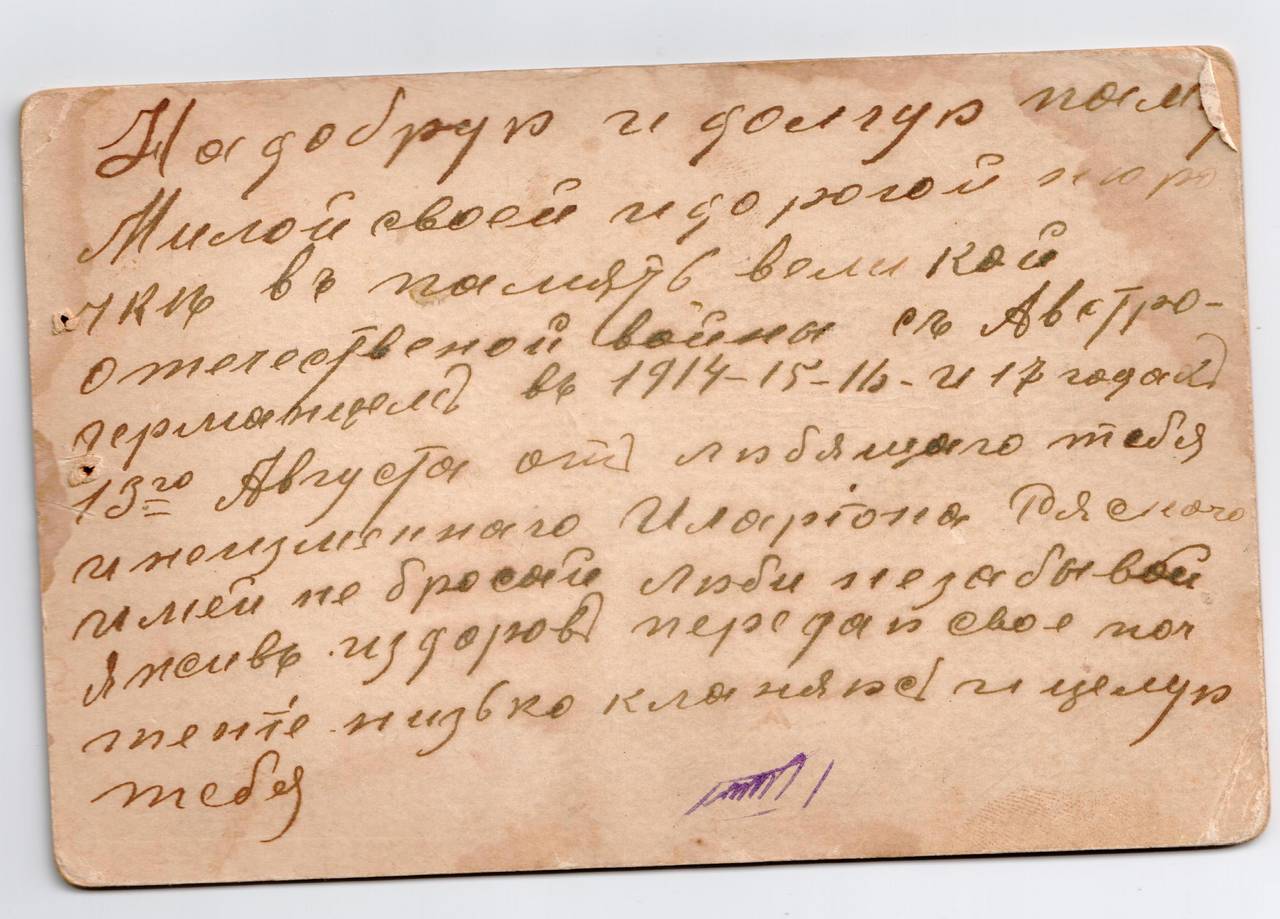 На добрую и долгую пам
Милой своей и дорогой нюро
чкѣ въ память великой
отечественой войны съ Австро-
германцемъ въ 1914-15-16-и 17 годахъ
13го Августа отъ любящаго тебя
и неизменнаго Иларіона Ряснаго
имей не бросай люби незабывай
я живъ издоровъ передаю свое поч
теніе низько кланяюсъ и целую
тебя